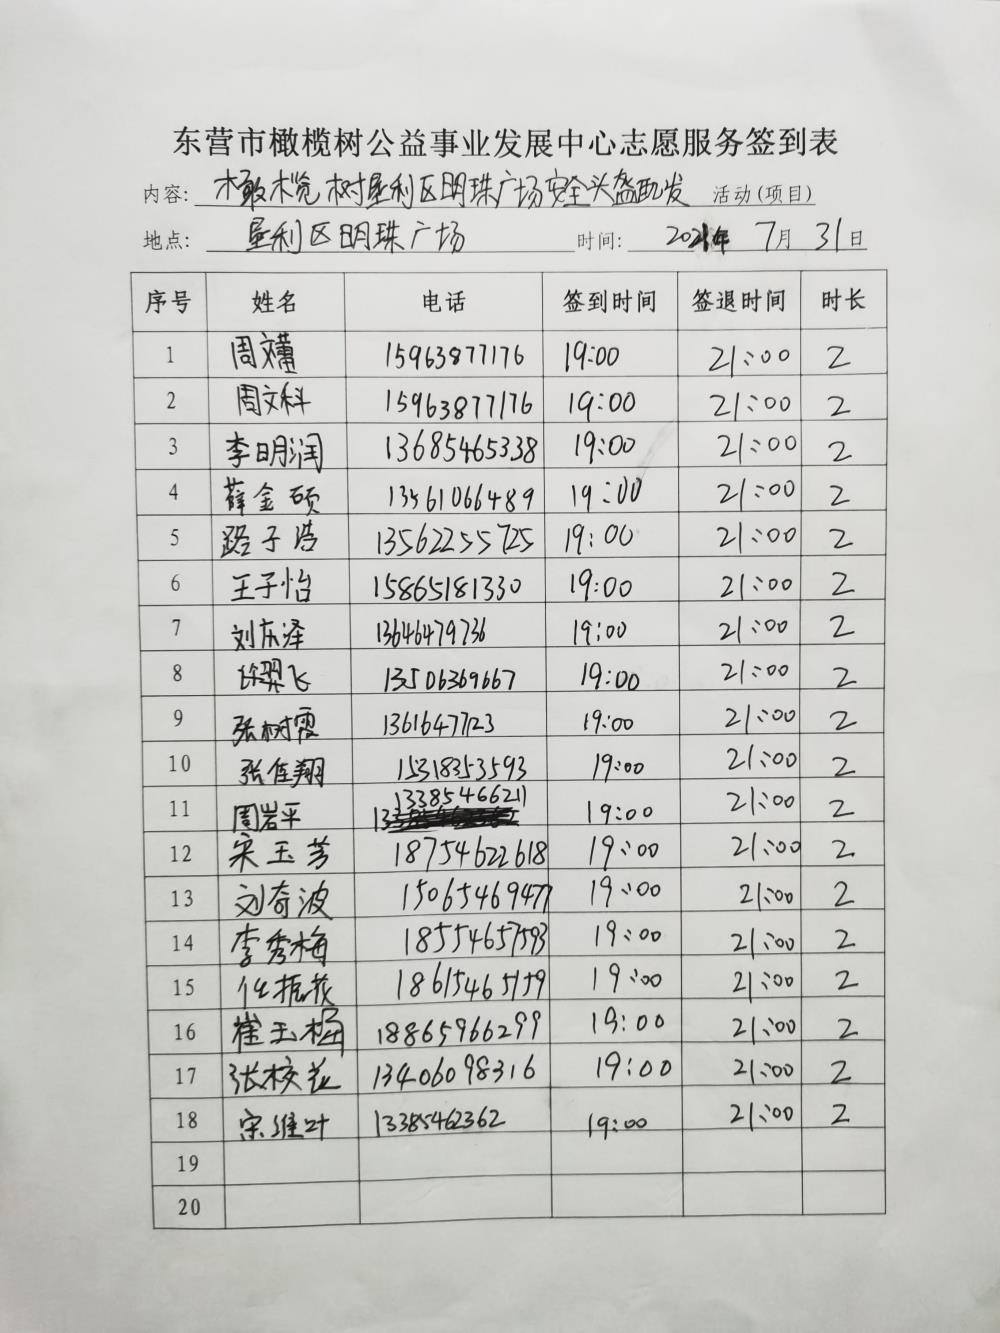 东营市橄榄树公益事业发展中心志愿服务签到表
内容: 橄榄树垦利区明珠广场安全头盔配发 活动(项目)
地点: 垦利区明珠广场 时间: 2021年 7月 31日
序号 姓名 电话 签到时间 签退时间 时长
1 周文 15963877176 19:00 21:00 2
2 周文科 15963877176 19:00 21:00 2
3 李明润 13685465338 19:00 21:00 2
4 薛金硕 13561066489 19:00 21:00 2
5 路子浩 13562255725 19:00 21:00 2
6 王子怡 15865181330 19:00 21:00 2
7 刘东泽 13646479736 19:00 21:00 2
8 徐翠飞 13506369667 19:00 21:00 2
9 张树霞 13616477123 19:00 21:00 2
10 张佳翔 15318353593 19:00 21:00 2
11 周岩平 13385466211 19:00 21:00 2
12 宋玉芳 18754622618 19:00 21:00 2
13 刘奇波 15065469477 19:00 21:00 2
14 李秀梅 18554657593 19:00 21:00 2
15 任振花 18615465159 19:00 21:00 2
16 崔玉梅 18865966299 19:00 21:00 2
17 张校花 13406098316 19:00 21:00 2
18 宋维叶 13385462362 19:00 21:00 2
19
20